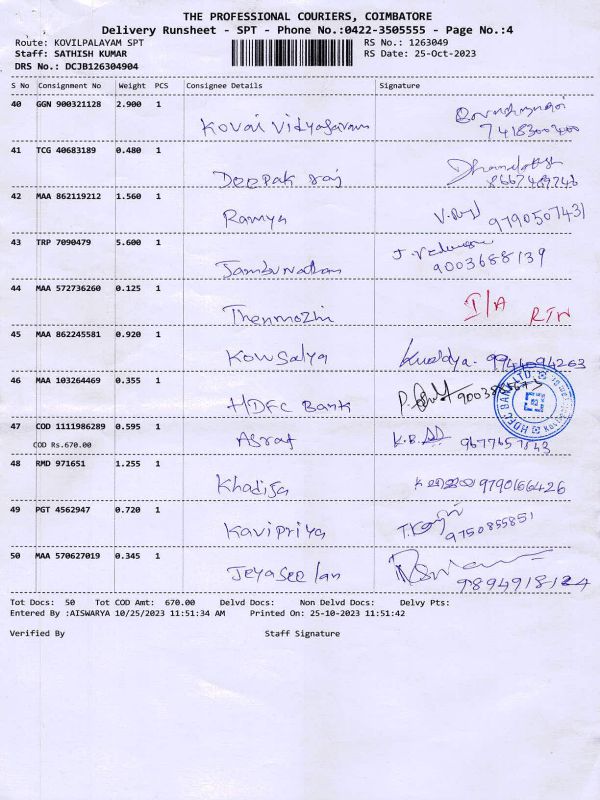 THE PROFESSIONAL COURIERS, COIMBATORE
Delivery Runsheet - SPT - Phone No.:0422-3505555 - Page No.:4
Route: KOVILPALAYAM SPT RS No.: 1263049
Staff: SATHISH KUMAR RS Date: 25-Oct-2023
DRS No.: DCJB126304904
S No Consignment No Weight PCS Consignee Details Signature
40 GGN 900321128 2.900 1
Kovai Vidyasaram 7418300400
41 TCG 40683189 0.480 1
Deepak raj 8667487746
42 MAA 862119212 1.560 1
Ramya 9790507431
43 TRP 7090479 5.600 1
Jambunathan 9003688139
44 MAA 572736260 0.125 1
Thenmozhi I/A RTN
45 MAA 862245581 0.920 1
Kowsalya 9944094263
46 MAA 103264469 0.355 1
HDFC Bank
HDFC BANK LTD.
47 COD 1111986289 0.595 1
COD Rs.670.00
Asraf 9677657843
48 RMD 971651 1.255 1
Khadija 9790166426
49 PGT 4562947 0.720 1
Kavipriya 9750855851
50 MAA 570627019 0.345 1
Jeyaseelan 9894918124
Tot Docs: 50 Tot COD Amt: 670.00 Delvd Docs: Non Delvd Docs: Delvy Pts:
Entered By :AISWARYA 10/25/2023 11:51:34 AM Printed On: 25-10-2023 11:51:42
Verified By Staff Signature